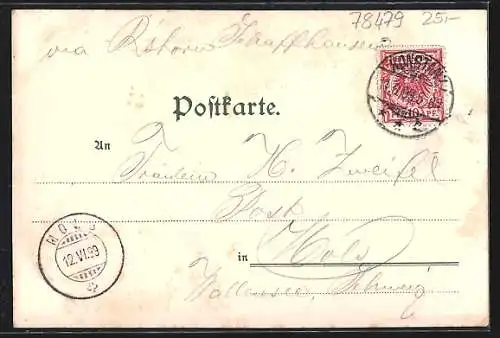 78479 25.-
via Schaffhausen
KONSTANZ
Postkarte.
An
Fräulein H. Zweifel
Post
in Mols
Wallensee, Schweiz
MOLS
12.VI.99